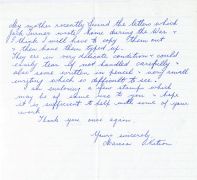 My mother recently found the letters which
Jack Turner wrote home during the War &
I think I will have to copy them out
& then have them typed up.
They are in very delicate condition & could
easily tear if not handled carefully &
also some written in pencil & very small
writing which is difficult to see.
I am enclosing a few stamps which
may be of some use to you & hope
it is sufficient to help with some of your
work.
Thank you once again
Yours sincerely